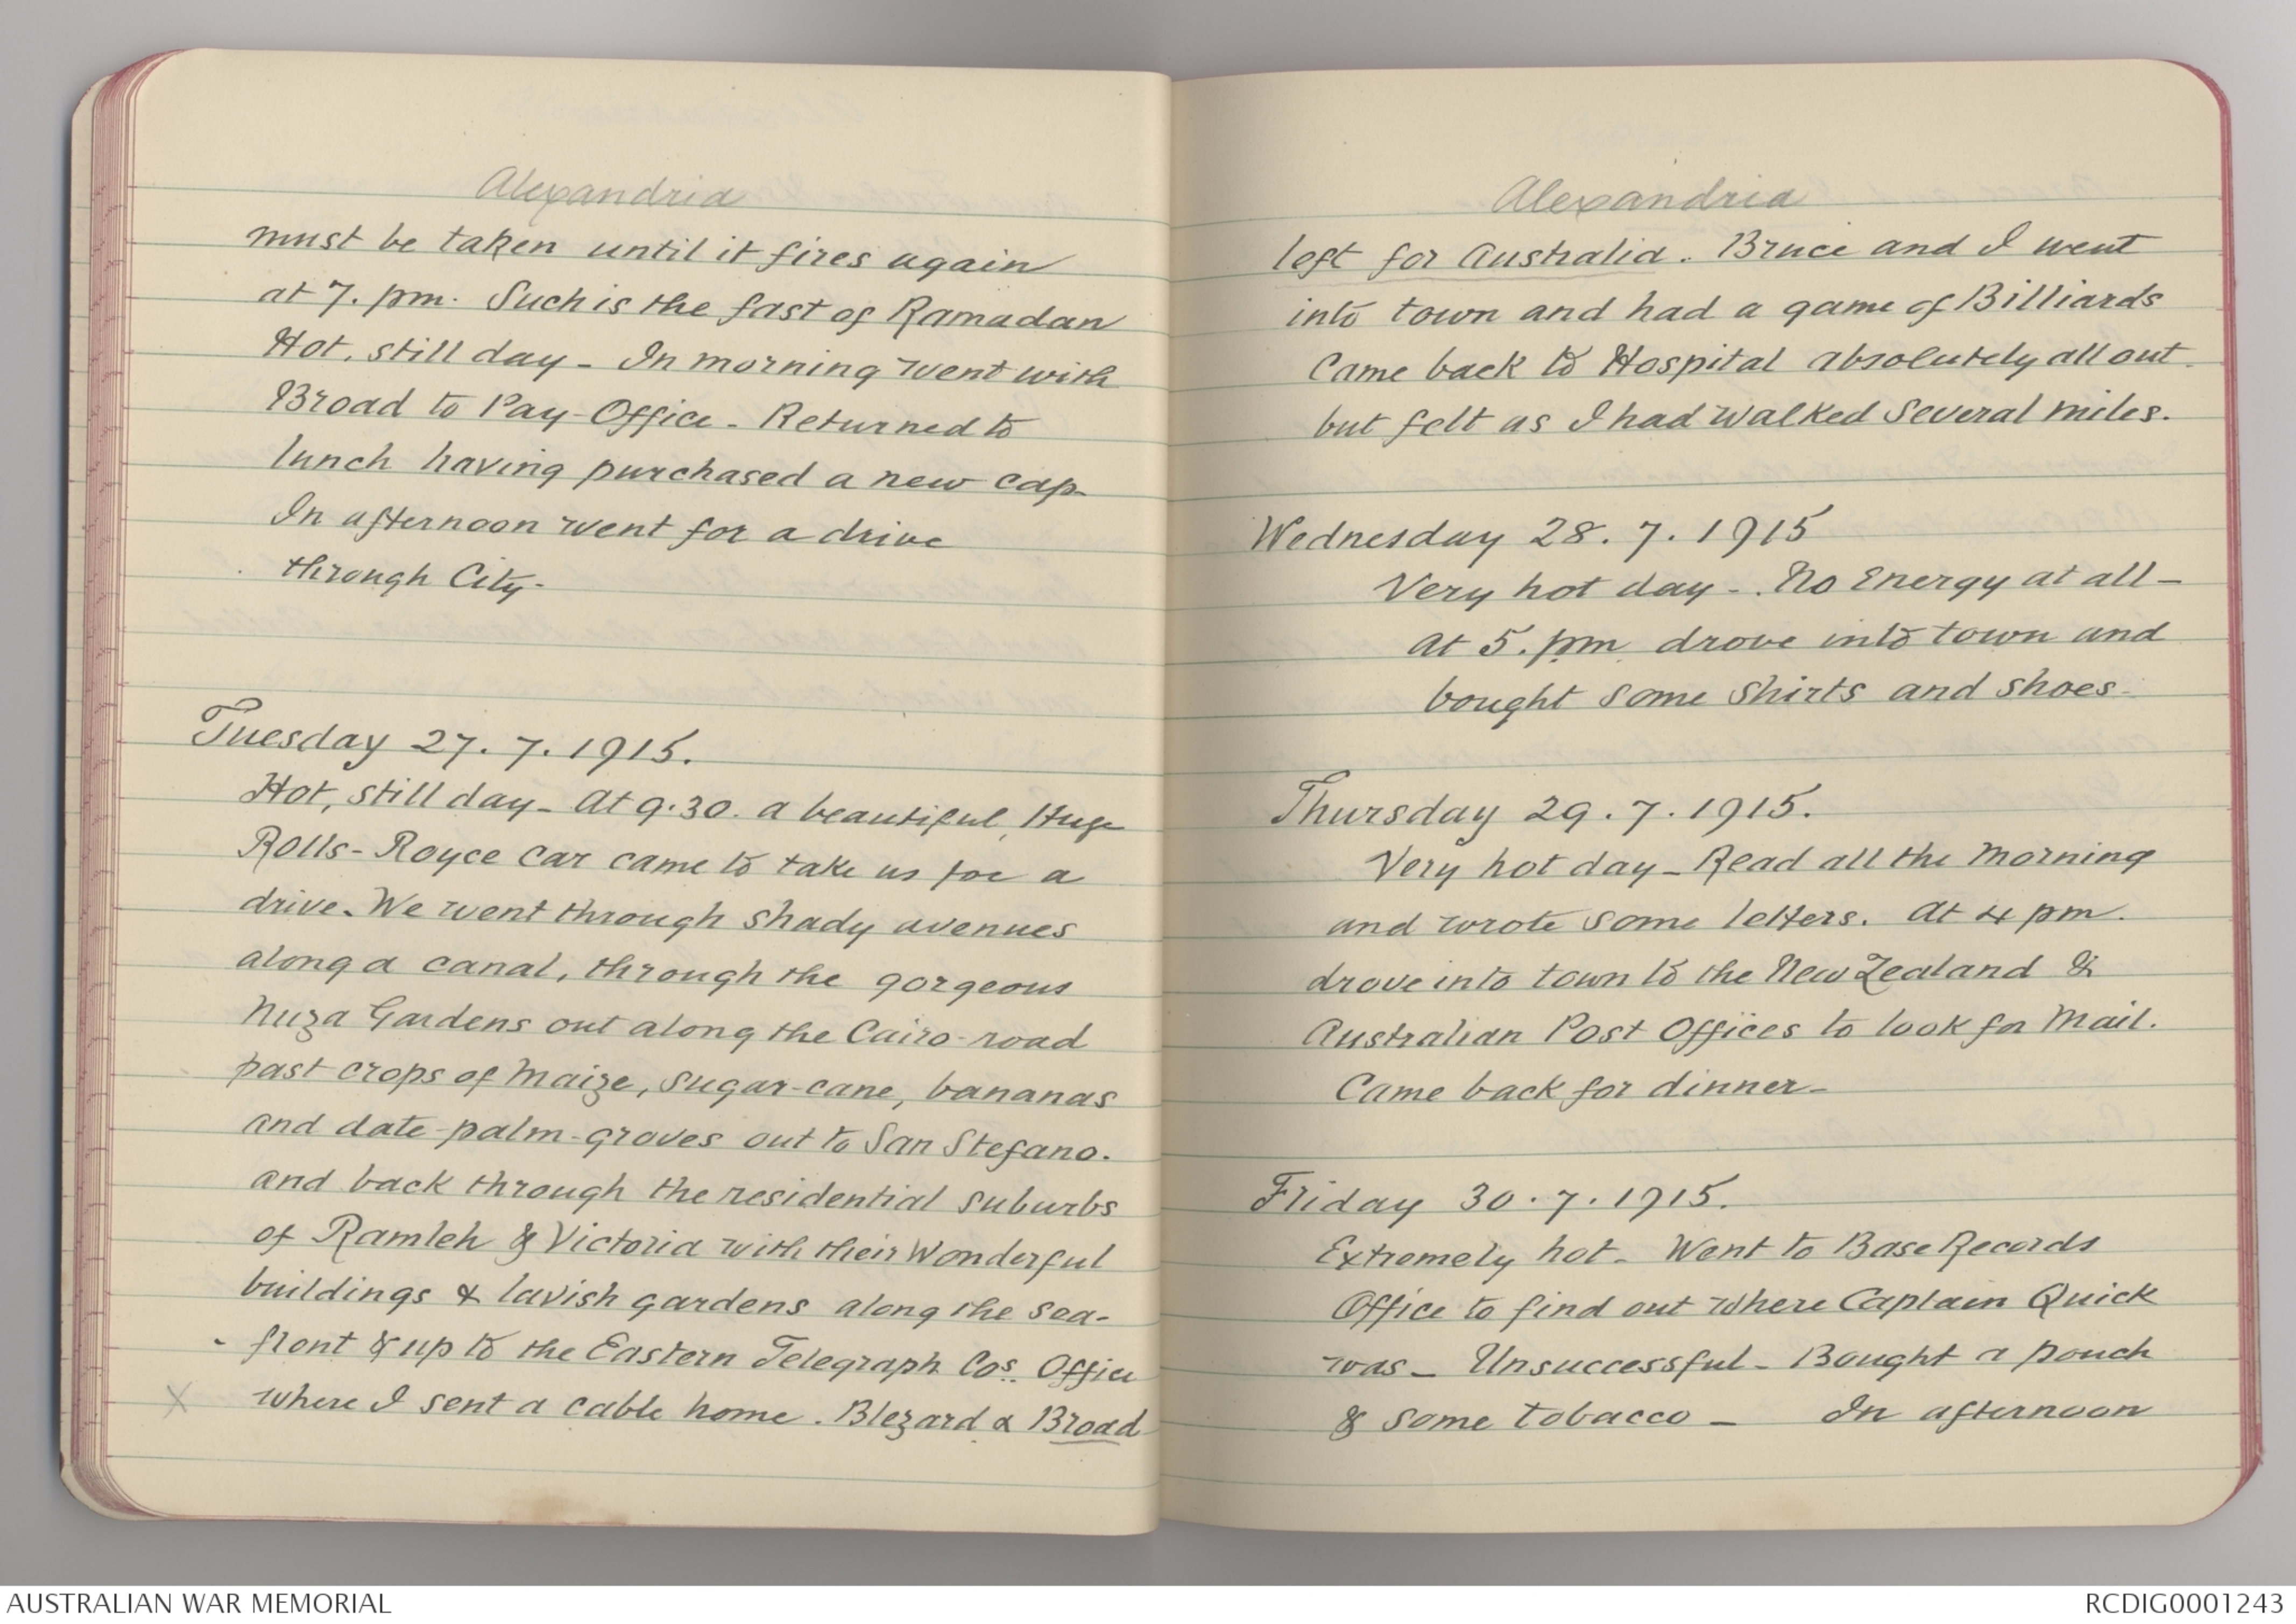 Alexandria
must be taken until it fires again
at 7. pm. Such is the fast of Ramadan
Hot, still day - In morning went with
Broad to Pay-Office - Returned to
lunch having purchased a new cap.
In afternoon went for a drive
through City -
Tuesday 27. 7. 1915.
Hot, still day - At 9.30. a beautiful, Huge
Rolls-Royce car came to take us for a
drive. We went through shady avenues
along a canal, through the gorgeous
Nuza Gardens out along the Cairo-road
past crops of Maize, sugar-cane, bananas
and date-palm-groves out to San Stefano.
and back through the residential suburbs
of Ramleh & Victoria with their Wonderful
buildings & lavish gardens along the sea-
- front & up to the Eastern Telegraph Cos. Office
X where I sent a cable home. Blezard & Broad
Alexandria
left for Australia. Bruce and I went
into town and had a game of Billiards
Came back to Hospital absolutely all out.
but felt as I had walked several miles.
Wednesday 28. 7. 1915
Very hot day -. No Energy at all -
At 5. pm. drove into town and
bought some shirts and shoes -
Thursday 29. 7. 1915.
Very hot day - Read all the Morning
and wrote some letters. At 4 pm.
drove into town to the New Zealand &
Australian Post Offices to look for Mail.
Came back for dinner -
Friday 30. 7. 1915.
Extremely hot - Went to Base Records
Office to find out where Captain Quick
was - Unsuccessful - Bought a pouch
& some tobacco - In afternoon
AUSTRALIAN WAR MEMORIAL
RCDIG0001243